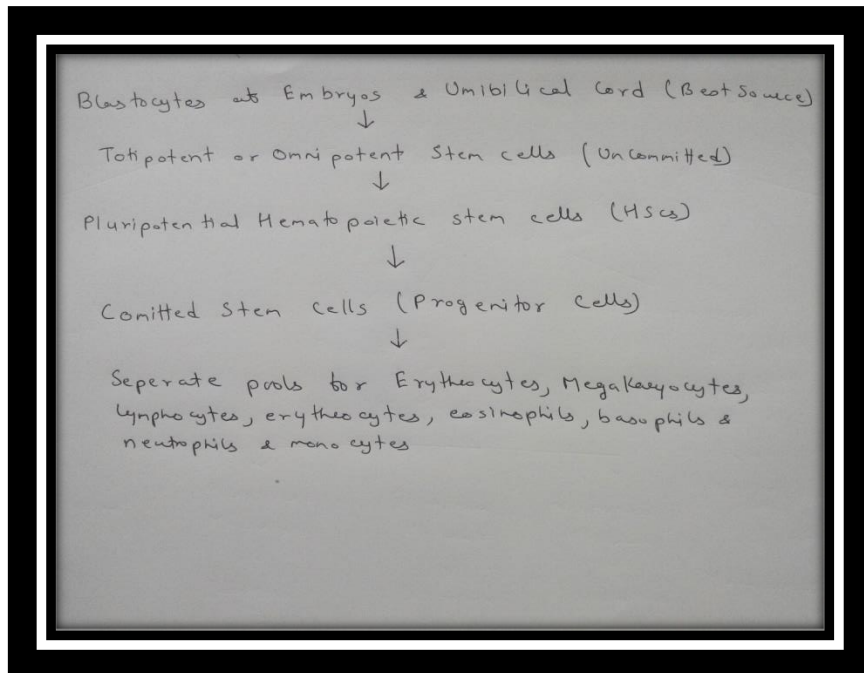 Blastocytes of Embryos & Umibilical Cord (Best Source)
↓
Totipotent or Omnipotent Stem cells (Uncommitted)
↓
Pluripotential Hematopoietic stem cells (HScs)
↓
Comitted Stem cells (Progenitor cells)
↓
Seperate pools for Erytheocytes, Megakaryocytes,
lymphocytes, erytheocytes, eosinophils, basophils &
neutrophils & monocytes